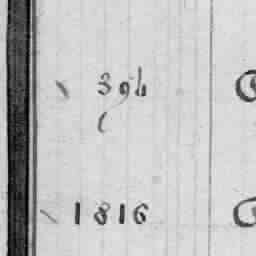 394
1816